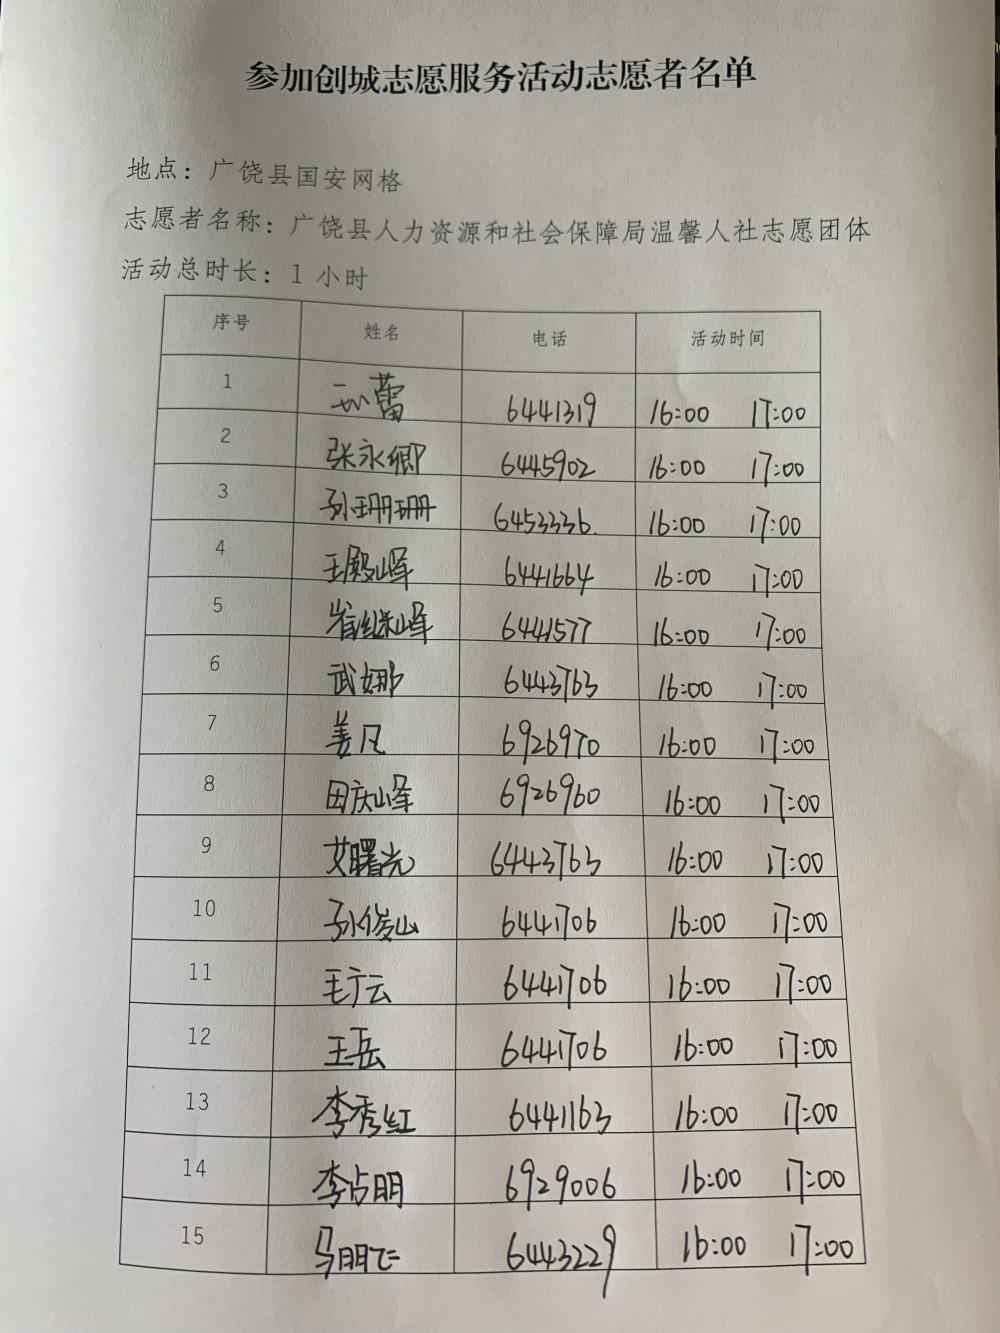 参加创城志愿服务活动志愿者名单
地点：广饶县国安网格
志愿者名称：广饶县人力资源和社会保障局温馨人社志愿团体
活动总时长：1 小时
序号 姓名 电话 活动时间
1 蕾 6441319 16:00 17:00
2 张永卿 6445902 16:00 17:00
3 孙珊珊 6453336. 16:00 17:00
4 王殿峰 6441664 16:00 17:00
5 崔继峰 6441577 16:00 17:00
6 武娜 6443763 16:00 17:00
7 姜凡 6926970 16:00 17:00
8 田庆峰 6926960 16:00 17:00
9 艾曙光 6443763 16:00 17:00
10 孙俊山 6441706 16:00 17:00
11 毛广云 6441706 16:00 17:00
12 王岳 6441706 16:00 17:00
13 李秀红 6441163 16:00 17:00
14 李占明 6929006 16:00 17:00
15 马明 6443229 16:00 17:00